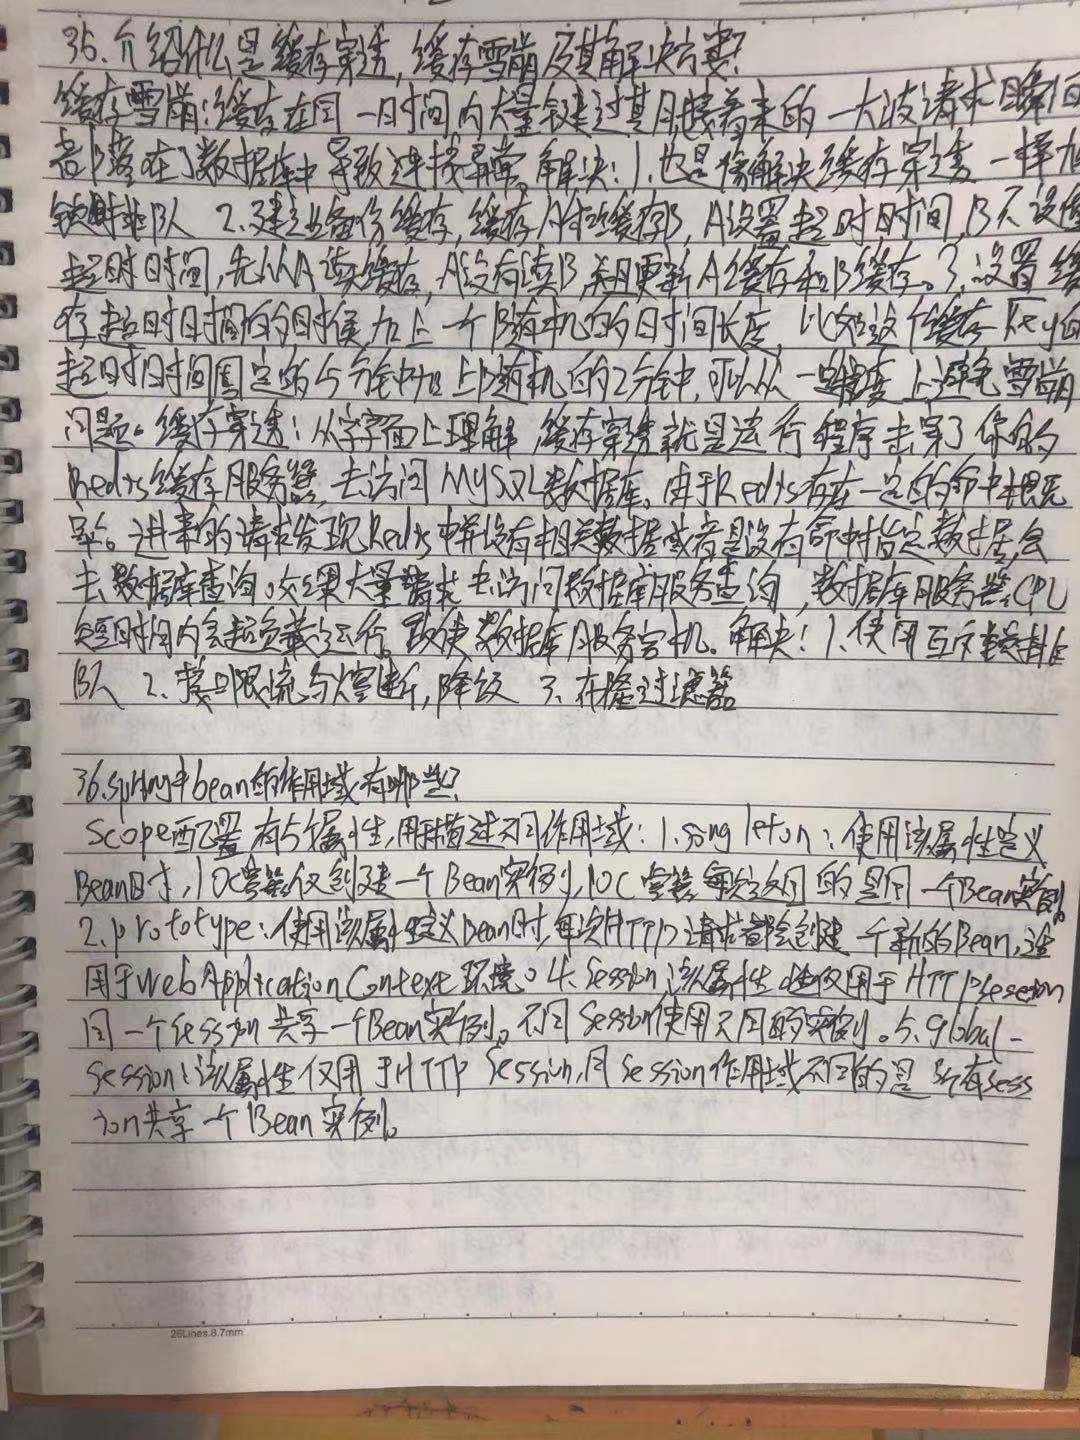 35.介绍什么是缓存穿透,缓存雪崩及其解决方案?
缓存雪崩:缓存在同一时间内大量键过期,接着来的一大波请求瞬间
都落在了数据库中导致连接异常。解决:1.也是像解决缓存穿透一样加
锁排队 2.建立备份缓存,缓存A和缓存B,A设置超时时间,B不设值
超时时间,先从A读缓存,A没有读B,并且更新A缓存和B缓存。3.设置缓
存超时时间的时候加上一个随机的时间长度,比如这个缓存Key的
超时时间固定的5分钟加上随机的2分钟,可以从一定程度上避免雪崩
问题。缓存穿透:从字面上理解 缓存穿透就是运行程序击穿了你的
Redis缓存服务器,去访问MySQL数据库。由于Redis存在一定的命中概
率。进来的请求发现Redis中并没有相关数据或者是没有命中指定数据,会
去数据库查询。如果大量请求去访问数据库服务查询,数据库服务器CPU
短时间内会超负载运行,致使数据库服务宕机。解决:1.使用互斥锁排
队 2.接口限流与熔断,降级 3.布隆过滤器
36.spring中bean的作用域有哪些?
Scope配置有5个属性,用描述不同作用域:1.singleton:使用该属性定义
Bean时,IOC容器仅创建一个Bean实例,IOC容器每次返回的是同一个Bean实例。
2.prototype:使用该属性定义Bean时,每次HTTP请求都会创建一个新的Bean,适
用于WebApplicationContext环境。4.Session该属性仅用于HTTPSession
同一个Session共享一个Bean实例。不同Session使用不同的实例。5.global-
session:该属性仅用于HTTP Session,同session作用域不同的是所有sess
ion共享一个Bean实例。
26Lines.8.7mm